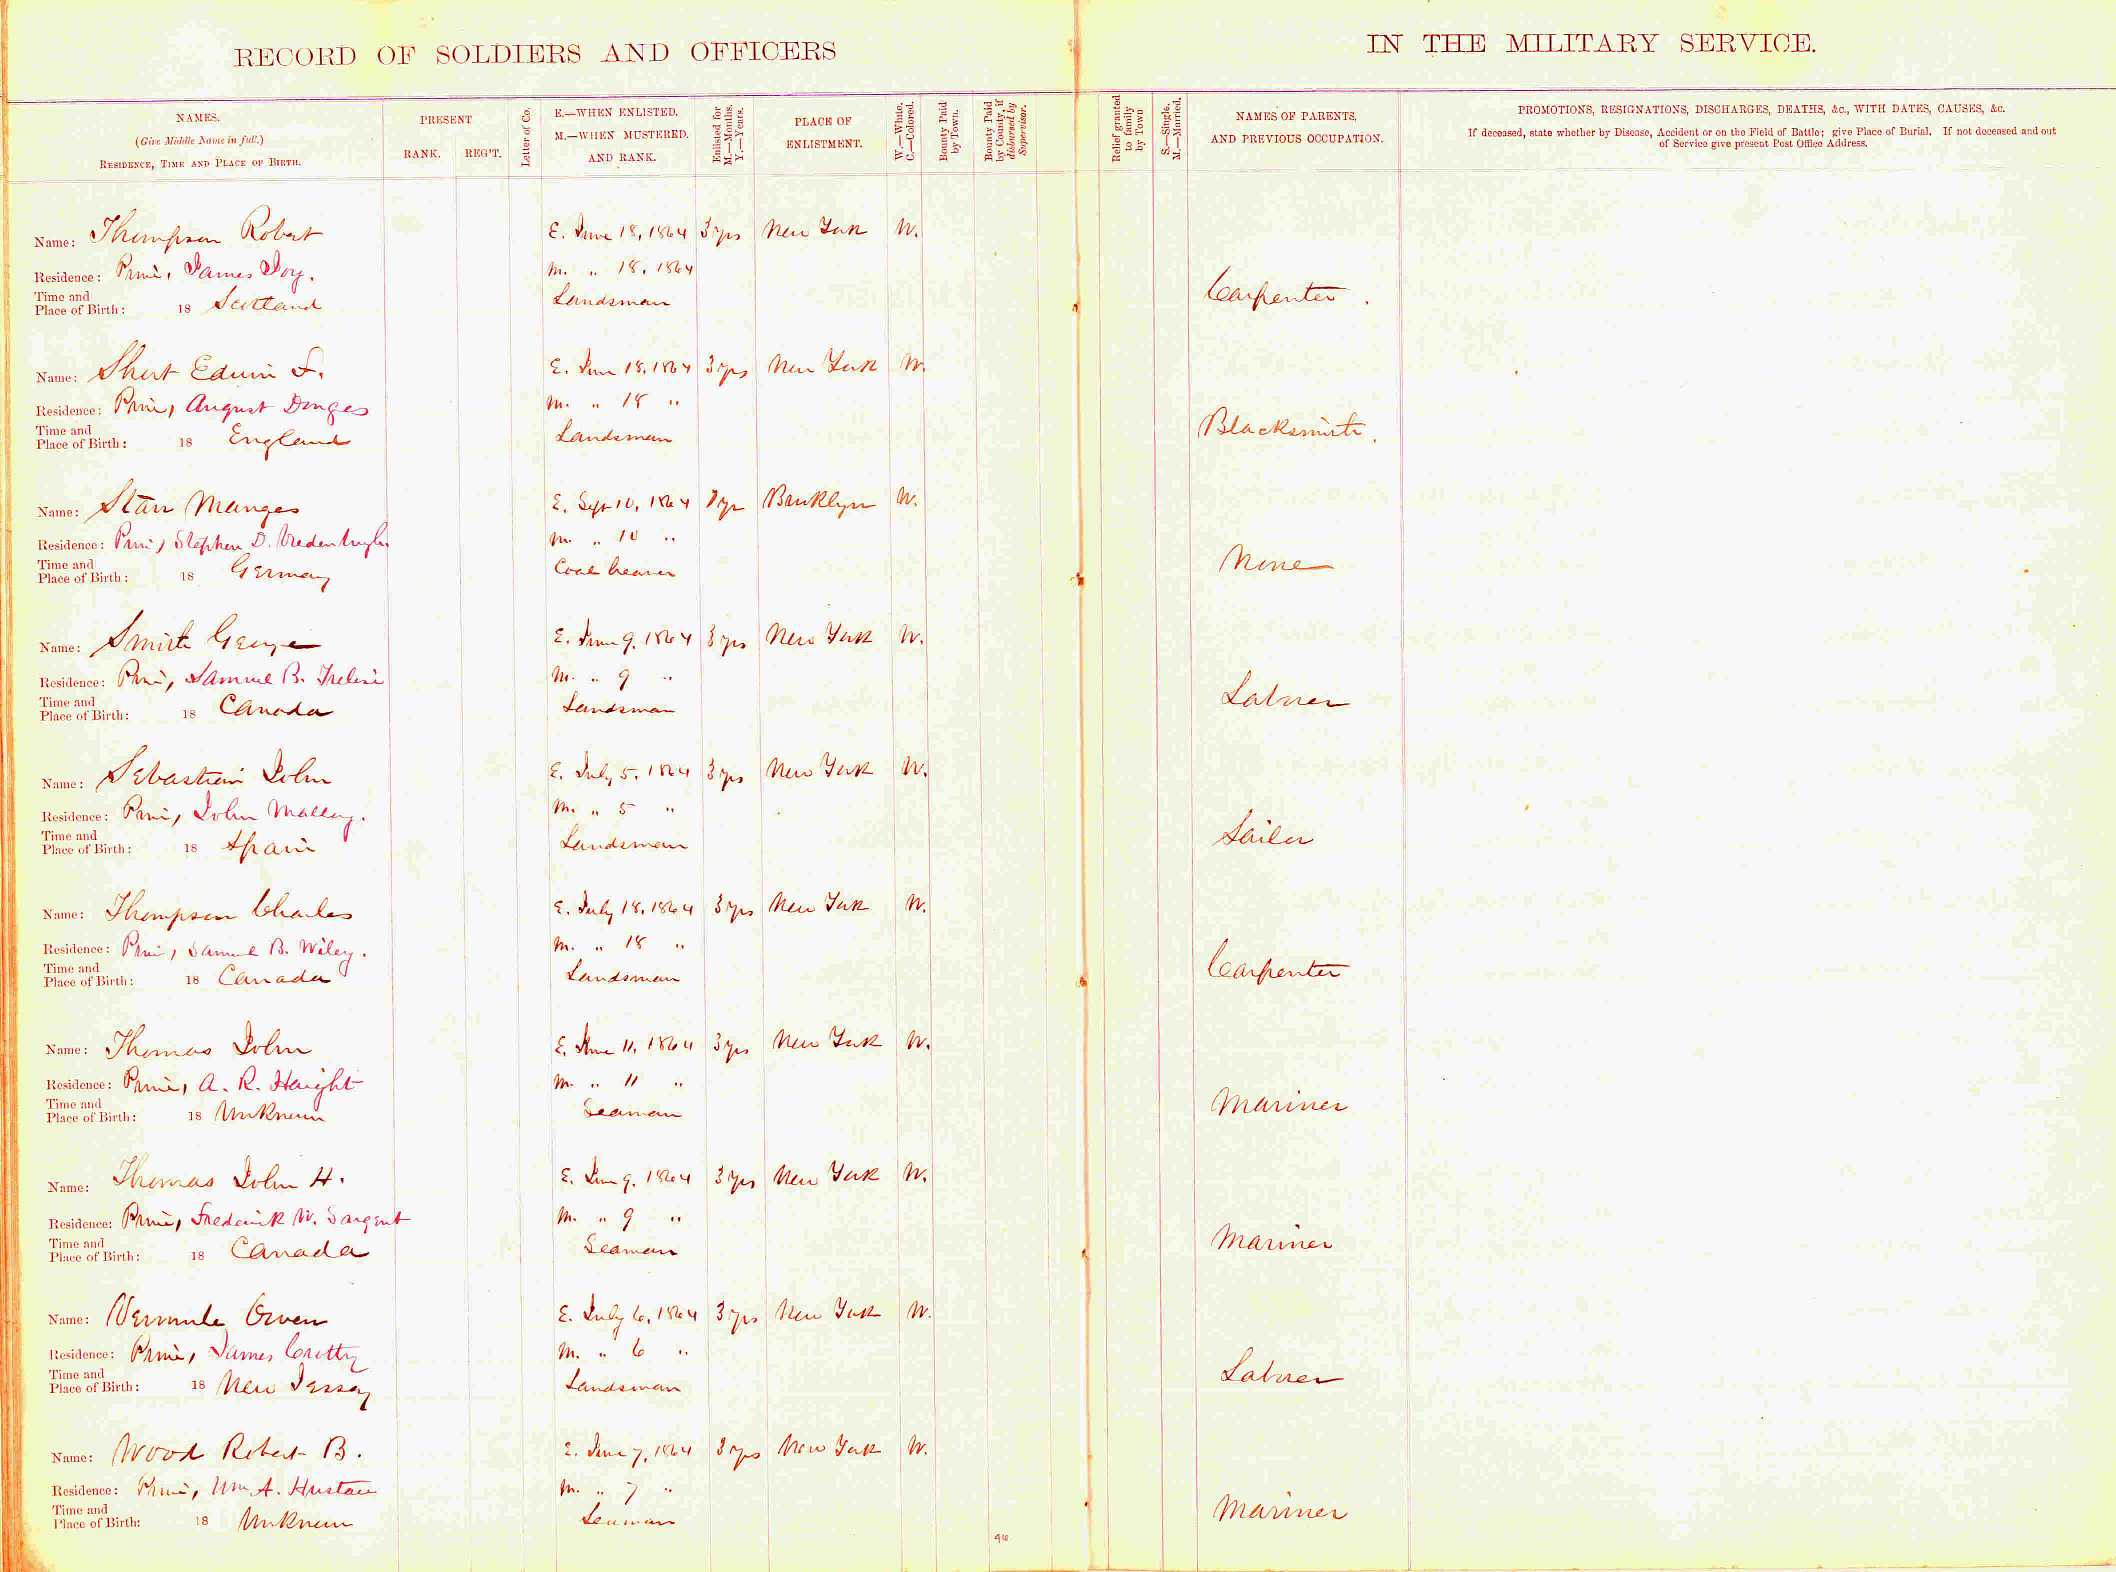 RECORD OF SOLDIERS AND OFFICERS IN THE MILITARY SERVICE.
NAMES. (Give Middle Name in full.) RESIDENCE, TIME AND PLACE OF BIRTH.
PRESENT RANK. REG'T.
Letter of Co.
E.—WHEN ENLISTED. M.—WHEN MUSTERED. AND RANK.
Enlisted for M.—Months. Y.—Years.
PLACE OF ENLISTMENT.
W.—White. C.—Colored.
Bounty Paid by Town.
Bounty Paid by County, if disbursed by Supervisor.
Relief granted to family by Town
S.—Single. M.—Married.
NAMES OF PARENTS, AND PREVIOUS OCCUPATION.
PROMOTIONS, RESIGNATIONS, DISCHARGES, DEATHS, &c., WITH DATES, CAUSES, &c.
If deceased, state whether by Disease, Accident or on the Field of Battle; give Place of Burial. If not deceased and out of Service give present Post Office Address.
Name: Thompson Robert E. June 18, 1864 3 yrs New York W.
Residence: Prin, James Joy. M. " 18, 1864
Time and Place of Birth: 18 Scotland Landsman Carpenter.
Name: Short Edwin F. E. June 18, 1864 3 yrs New York W.
Residence: Prin, August Donges M. " 18 "
Time and Place of Birth: 18 England Landsman Blacksmith.
Name: Starr Manges E. Sept 10, 1864 1 yr Brooklyn W.
Residence: Prin, Stephen D. Vredenburgh M. " 10 "
Time and Place of Birth: 18 Germany Coal heaver None
Name: Smith George E. June 9, 1864 3 yrs New York W.
Residence: Prin, Samuel B. M. " 9 "
Time and Place of Birth: 18 Canada Landsman Laborer
Name: Sebastian John E. July 5, 1864 3 yrs New York W.
Residence: Prin, John Mallery. M. " 5 "
Time and Place of Birth: 18 Spain Landsman Sailor
Name: Thompson Charles E. July 18, 1864 3 yrs New York W.
Residence: Prin, Samuel B. Wiley. M. " 18 "
Time and Place of Birth: 18 Canada Landsman Carpenter
Name: Thomas John E. June 11, 1864 3 yrs New York W.
Residence: Prin, A. R. Haight M. " 11 "
Time and Place of Birth: 18 Unknown Seaman Mariner
Name: Thomas John H. E. June 9, 1864 3 yrs New York W.
Residence: Prin, Frederick W. Sargent M. " 9 "
Time and Place of Birth: 18 Canada Seaman Mariner
Name: Vermule Owen E. July 6, 1864 3 yrs New York W.
Residence: Prin, James M. " 6 "
Time and Place of Birth: 18 New Jersey Landsman Laborer
Name: Wood Robert B. E. June 7, 1864 3 yrs New York W.
Residence: Prin, Wm A. Hustace M. " 7 "
Time and Place of Birth: 18 Unknown Seaman Mariner